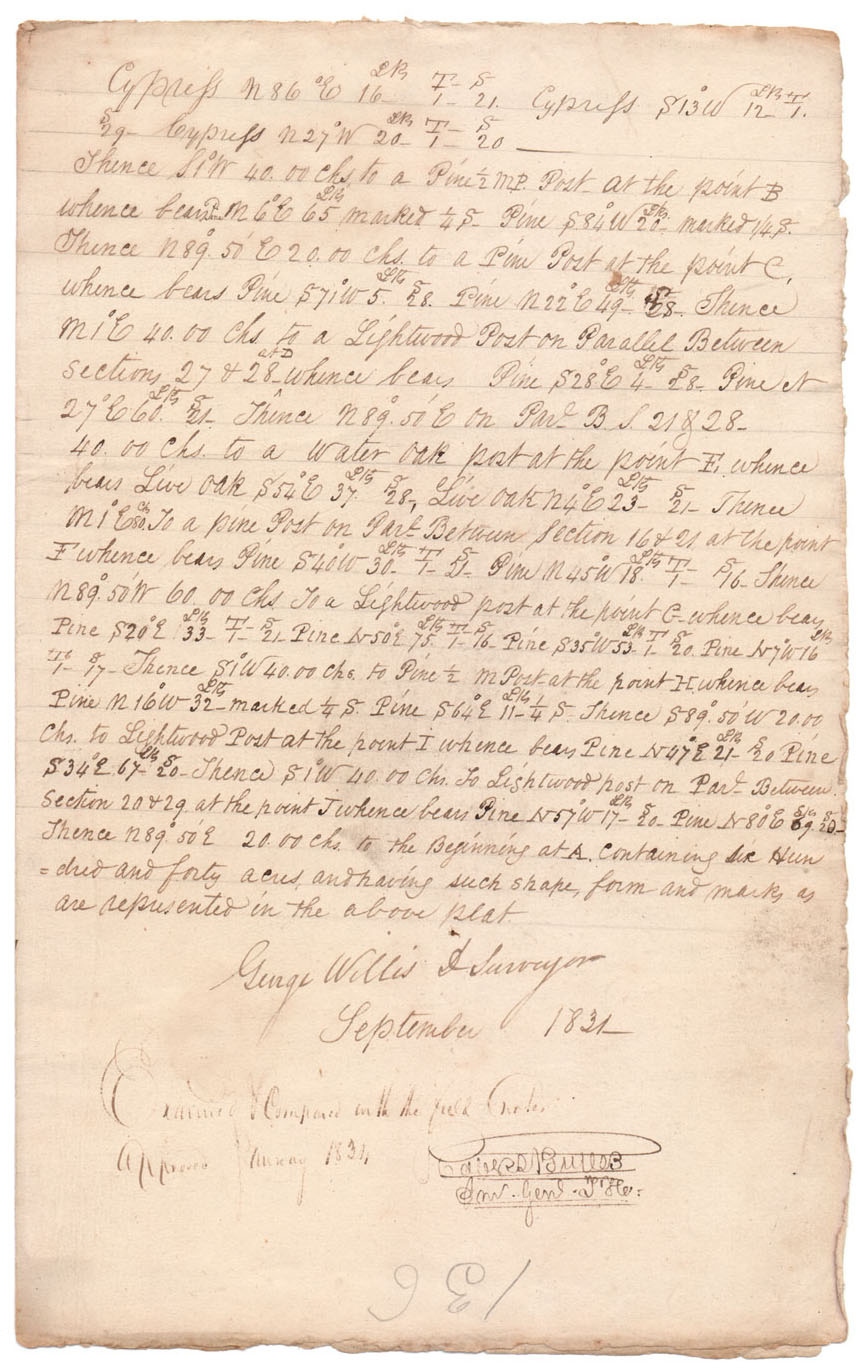 Cypress N 86°E 16 Lks T 1 S 21. Cypress S 13°W 12 Lks T 1.
S 29 – Cypress N 27°W 20 Lks T 1 S 20 —
Thence S 1°W 40.00 chs to a Pine ½ M.P. Post at the point B
whence bears P. N 6°E 65 Lks marked ¼ S – Pine S 84°W 20 Lks marked ¼ S.
Thence N 89°.50'E 20.00 chs. to a Pine Post at the point C,
whence bears Pine S 71°W 5 Lks S 28. Pine N 22°E 49 Lks S 28 – Thence
N 1°E 40.00 chs. to a Lightwood Post on Parallel Between
Sections 27 & 28 at D – whence bears Pine S 28°E 4 Lks S 28 – Pine N
27°E 60 Lks S 21 – Thence N 89°.50'E on Parl. B. S. 21 & 28 –
40.00 chs. to a water oak post at the point E, whence
bears Live oak S 54°E 37 Lks S 28, Live oak N 4°E 23 Lks S 21 – Thence
N 1°E 80 ch To a pine Post on Parl. Between Section 16 & 21 at the point
F whence bears Pine S 40°W 30 Lks T 1 S 21 – Pine N 45°W 18 Lks T 1 S 16 – Thence
N 89°.50'W 60.00 chs. To a Lightwood post at the point G – whence bears
Pine S 20°E 33 Lks T 1 S 21 – Pine N 50°E 75 Lks T 1 S 16 – Pine S 35°W 53 Lks T 1 S 20. Pine N 7°W 16 Lks
T 1 S 17 – Thence S 1°W 40.00 chs. to Pine ½ M Post at the point H whence bears
Pine N 16°W 32 Lks – marked ¼ S. Pine S 64°E 11 Lks ¼ S – Thence S 89°.50'W 20.00
Chs. to Lightwood Post at the point I whence bears Pine N 47°E 21 Lks – S 20 Pine
S 34°E 67 Lks S 20 – Thence S 1°W 40.00 chs. To Lightwood post on Parl. Between
Section 20 & 29 at the point J whence bears Pine N 57°W 17 Lks – S 20 – Pine N 80°E 69 S 20 –
Thence N 89°.50'E 20.00 chs. to the Beginning at A. Containing six Hun
=dred and forty acres, and having such shape, form and marks as
are represented in the above plat.
George Willis D Surveyor
September 1831
Examined & Compared with the field notes
Approved January 1834
Robert Butler
Sur. Genl. T Flo:
136